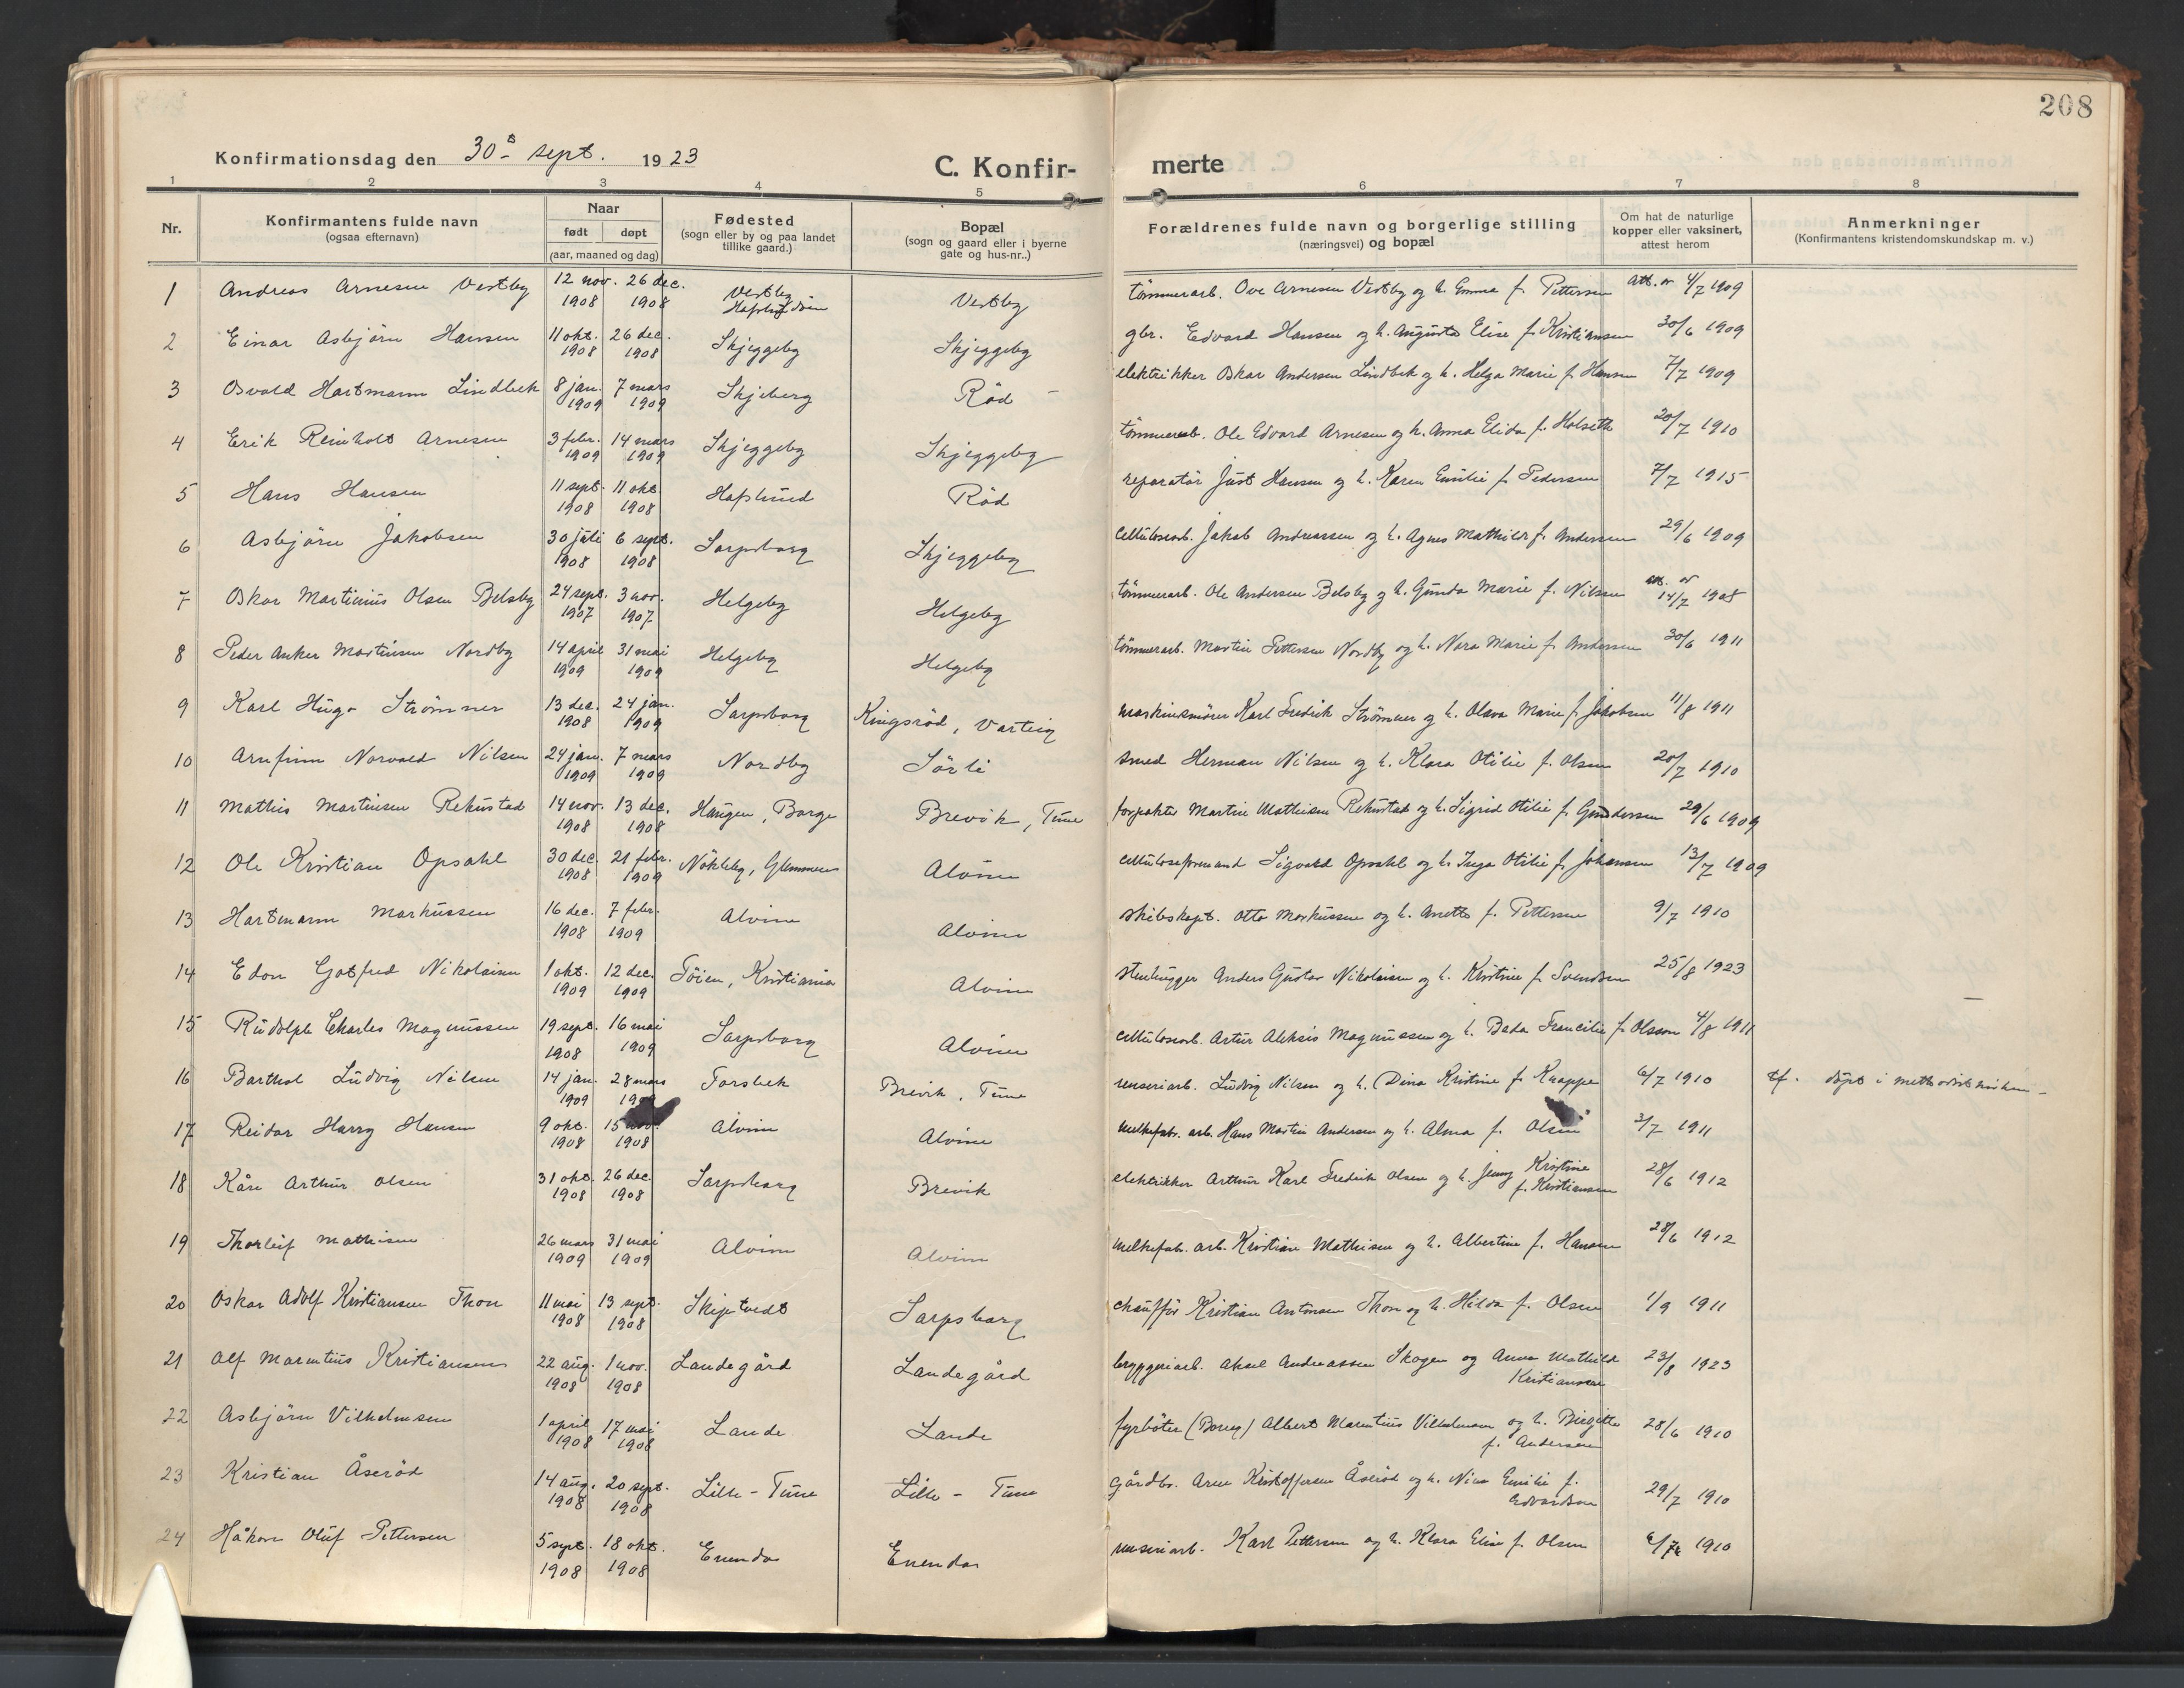 208
Konfirmationsdag den 30te sept. 1923
C. Konfir-
merte
1 2 3 4 5 6 7 8
Nr.
Konfirmantens fulde navn
(ogsaa efternavn)
Naar
født døpt
(aar, maaned og dag)
Fødested
(sogn eller by og paa landet
tillike gaard.)
Bopæl
(sogn og gaard eller i byerne
gate og hus-nr..)
Forældrenes fulde navn og borgerlige stilling
(næringsvei) og bopæl
Om hat de naturlige
kopper eller vaksinert,
attest herom
Anmerkninger
(Konfirmantens kristendomskundskap m. v.)
1 Andreas Arnesen Vestby 12 nov. 1908 26 dec. 1908 Vestby Hafslund Vestby tømmerarb. Ove Arnesen Vestby og h. Emma f. Pettersen Att. av 4/7 1909
2 Einar Asbjörn Hansen 11 okt. 1908 26 dec. 1908 Skjeggeby Skjeggeby gbr. Edvard Hansen og h. Augusta Elise f. Kristiansen 30/6 1909
3 Osvald Hartmann Lindbek 8 jan. 1909 7 mars 1909 Skjeberg Röd elektrikker Oskar Andersen Lindbek og h. Helga Marie f. Hansen 7/7 1909
4 Erik Reinholt Arnesen 3 febr. 1909 14 mars 1909 Skjeggeby Skjeggeby tömmerarb. Ole Edvard Arnesen og h. Anna Elida f. Holseth 20/7 1910
5 Hans Hansen 11 sept. 1908 11 okt. 1908 Hafslund Röd reparatör Just Hansen og h. Karen Emilie f. Pedersen 7/7 1915
6 Asbjörn Jakobsen 30 juli 1908 6 sept. 1908 Sarpsborg Skjeggeby cellulosearb. Jakob Andreassen og h. Agnes Mathilde f. Andersen 29/6 1909
7 Oskar Martinius Olsen Belsby 24 sept. 1907 3 nov. 1907 Helgeby Helgeby tömmerarb. Ole Andersen Belsby og h. Gunda Marie f. Nilsen att. av 14/7 1908
8 Peder Anker Martinsen Nordby 14 april 1909 31 mai 1909 Helgeby Helgeby tömmerarb. Martin Pettersen Nordby og h. Nora Marie f. Andersen 30/6 1911
9 Karl Hugo Strömner 13 dec. 1908 24 jan. 1909 Sarpsborg Kingsröd, Varteig maskinsmörer Karl Fredrik Strömner og h. Olava Marie f. Jakobsen 11/8 1911
10 Arnfinn Norvald Nilsen 24 jan. 1909 7 mars 1909 Nordby Sörli smed Herman Nilsen og h. Klara Otilie f. Olsen 20/7 1910
11 Mathis Martinsen Rekustad 14 nov. 1908 13 dec. 1908 Haugen, Borge Brevik, Tune forpakter Martin Mathisen Rekustad og h. Sigrid Otilie f. Gundersen 29/6 1909
12 Ole Kristian Opsahl 30 dec. 1908 21 febr. 1909 Nökleby, Glemmen Alvim celluloseformand Sigvald Opsahl og h. Inga Otilie f. Johansen 13/7 1909
13 Hartmann Markussen 16 dec. 1908 7 febr. 1909 Alvim Alvim skibskapt. Otto Markussen og h. Anette f. Pettersen 9/7 1910
14 Edon Gotfred Nikolaisen 1 okt. 1909 12 dec. 1909 Töien, Kristiania Alvim stenhugger Anders Gustav Nikolaisen og h. Kristine f. Svendsen 25/8 1923
15 Rudolph Charles Magnussen 19 sept. 1908 16 mai 1909 Sarpsborg Alvim cellulosearb. Artur Aleksis Magnussen og h. Beda Francilie f. Olsson 4/8 1911
16 Barthol Ludvig Nilsen 14 jan. 1909 28 mars 1909 Torsbek Brevik, Tune renseriarb. Ludvig Nilsen og h. Dina Kristine f. Knappe 6/7 1910 tf. döpt i methodistkirken
17 Reidar Harry Hansen 9 okt. 1908 15 nov. 1908 Alvim Alvim melkefabr. arb. Hans Martin Andersen og h. Alma f. Olsen 3/7 1911
18 Kåre Arthur Olsen 31 okt. 1908 26 dec. 1908 Sarpsborg Brevik elektrikker Arthur Karl Fredrik Olsen og h. Jenny Kristine f. Kristiansen 28/6 1912
19 Thorleif Mathisen 26 mars 1909 31 mai 1909 Alvim Alvim melkefab. arb. Kristian Mathisen og h. Albertine f. Hansen 28/6 1912
20 Oskar Adolf Kristiansen Thon 11 mai 1908 13 sept. 1908 Skiptvedt Sarpsborg chaufför Kristian Antonsen Thon og h. Hilda f. Olsen 1/9 1911
21 Alf Marentius Kristiansen 22 aug. 1908 1 nov. 1908 Landegård Landegård bryggeriarb. Aksel Andreassen Skogen og Anna Mathilde Kristiansen 23/8 1923
22 Asbjörn Vilhelmsen 1 april 1908 17 mai 1908 Lande Lande fyrböter (Borreg) Albert Marentius Vilhelmsen og h. Birgitte f. Andersen 28/6 1910
23 Kristian Åseröd 14 aug. 1908 20 sept. 1908 Lille-Tune Lille-Tune Gårdbr. Aren Kristoffersen Åseröd og h. Nina Emilie f. Edvardsen 29/7 1910
24 Håkon Oluf Pettersen 5 sept. 1908 18 okt. 1908 Enenda Enenda renseriarb. Karl Pettersen og h. Klara Elise f. Olsen 6/7 1910